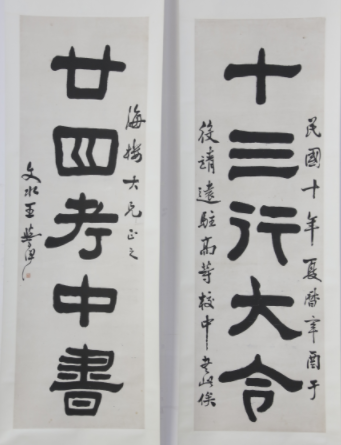 民國十年夏曆辛酉于
十三行大令
靖遠駐高等校中俟
海樓大兄正之
廿四考中書
文水王